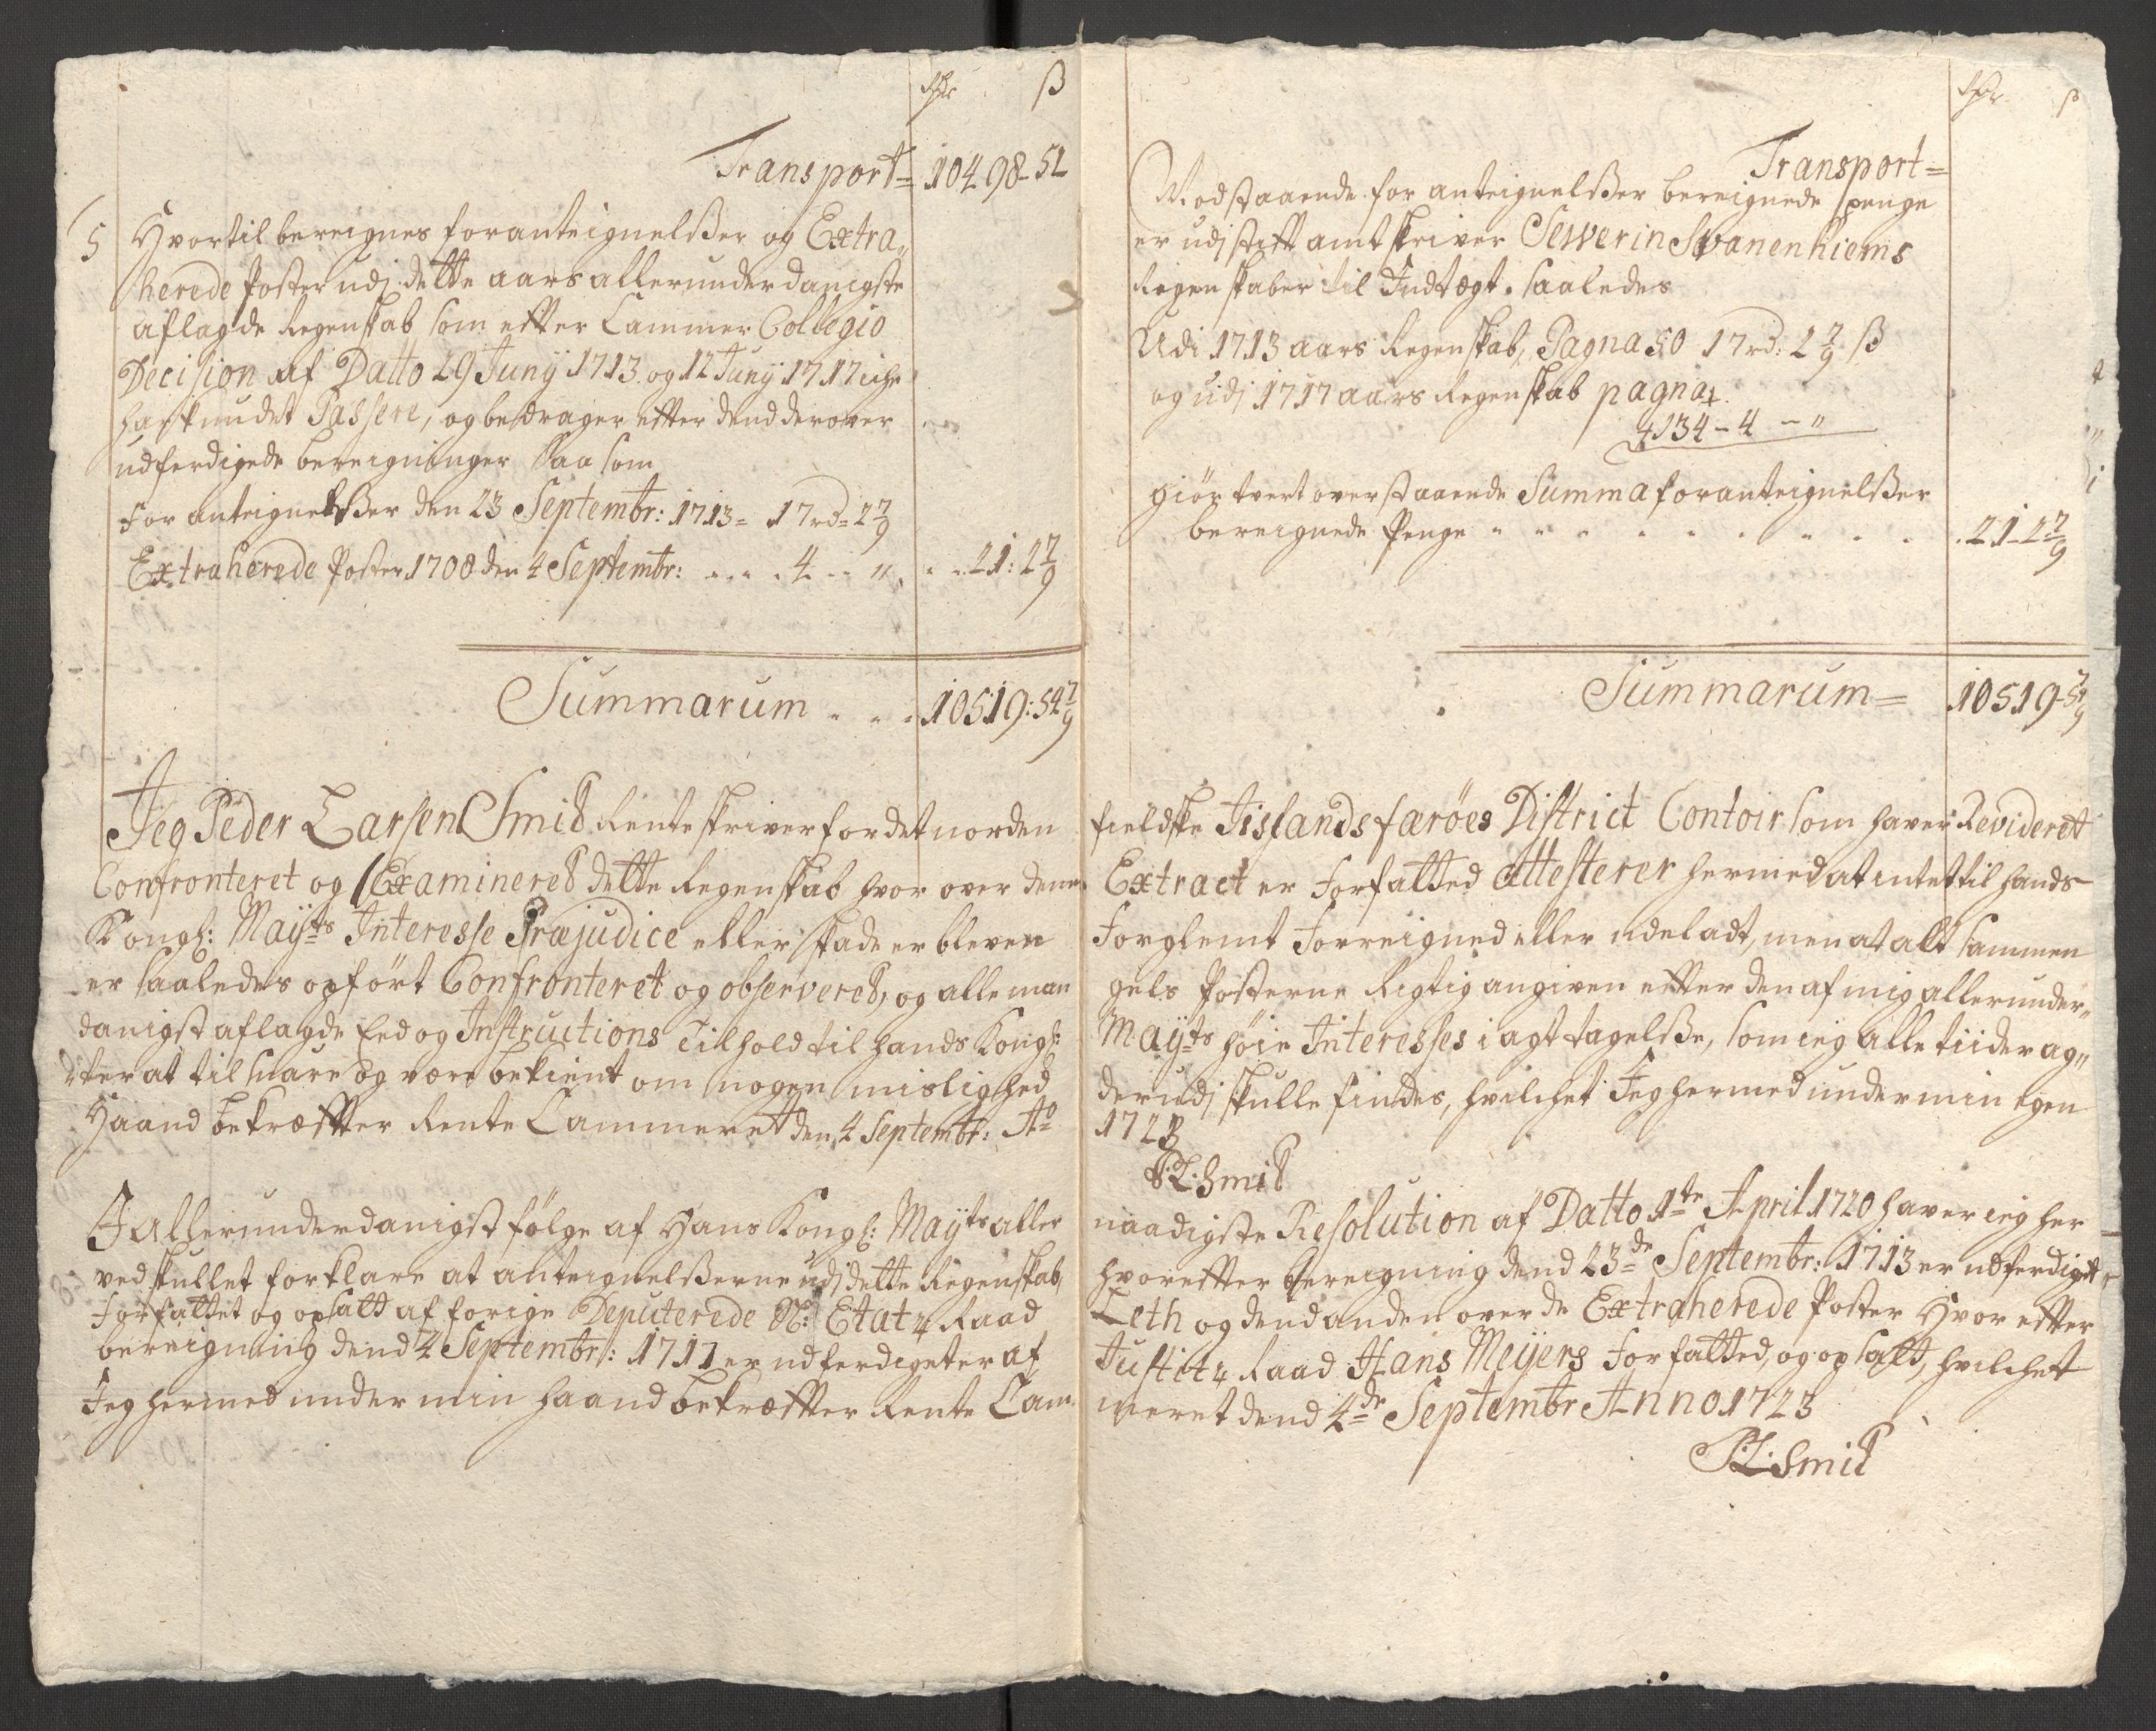 Rdr ß
Transport= 10498-52
5 Hvortil bereignes for anteignelßer og Extra„
herede Poster udj dette aars allerunderdanigste
aflagde Regenskab som efter Cammer Collegio
Decision af Datto 29 Junÿ 1713. og 12 Junÿ 1717 iche
har kundet Passere, og bedrager efter dend derover
udferdigede bereigninger Saa som
For anteignelßer den 23 Septembr: 1713= 17rd= 2 7/9
Extraherede Poster 1708 den 4 Septembr: . . . . 4 - - „ . . . 21: 2 7/9
Summarum . . . 10519: 54 7/9
Jeg Peder Larsen Smid Renteskriver for det norden
Confronteret og Examinered dette Regenskab hvor over denne
Kongl: Maÿts Interesse Præjudice eller skade er bleven
er saaledes opført Confronteret og observered, og alle man
danigst aflagde Eed og Instructions Tilhold til hands Kongl:
ter at til suare og være bekient om nogen mislighed
Haand bekræffter Rente Cammeret den 4 Septembr: Ao
I allerunderdanigst følge af Hans Kongl: Maÿts aller
ved skullet forklare at anteignelßerne udj dette Regenskab,
forfattet og opsatt af forige Deputerede N: Etatz Raad
bereigning dend 4 Septembr: 1717 er udferdiget er af
Jeg hermed under min haand bekræffter Rente Cam
Rdr ß
Transport=
Modstaaende for anteignelßer bereignede penge
er udj stift amtskriver Sewerin Svanenhiems
Regenskaber til Indtægt. saaledes
Udi 1713 aars Regenskab, Pagna 50 17rd: 2 7/9 ß
og udj 1717 aars Regenskab pagna
134 - 4 - „
giør tvert overstaaende Summa for anteignelßer
bereignede Penge . . . . . . . . . . 21-2 7/9
Summarum= 10519-54 7/9
fieldske Iislands færöes District Contoir som haver Revideret
Extract er Forfatted attesterer hermed at intet til hands
Forglemt Forreigned eller udeladt, men at alt sammen
gels Posterne Rigtig angiven efter den af mig allerunder„
Maÿts høie Interesses i agt tagelße, som ieg alle tiider ag„
derudj skulle findes, hvilchet Jeg hermed under min egen
1723
P:L:Smid
naadigste Resolution af Datto 1te April 1720 haver ieg her
hvorefter bereigning dend 23de Septembr: 1713 er udferdiget
Leth og dend anden over de Extraherede Poster Hvor efter
Justitz Raad Hans Meÿers Forfatted, og opsatt, hvilchet
meret dend 4de Septembr Anno 1723
P:L:Smid